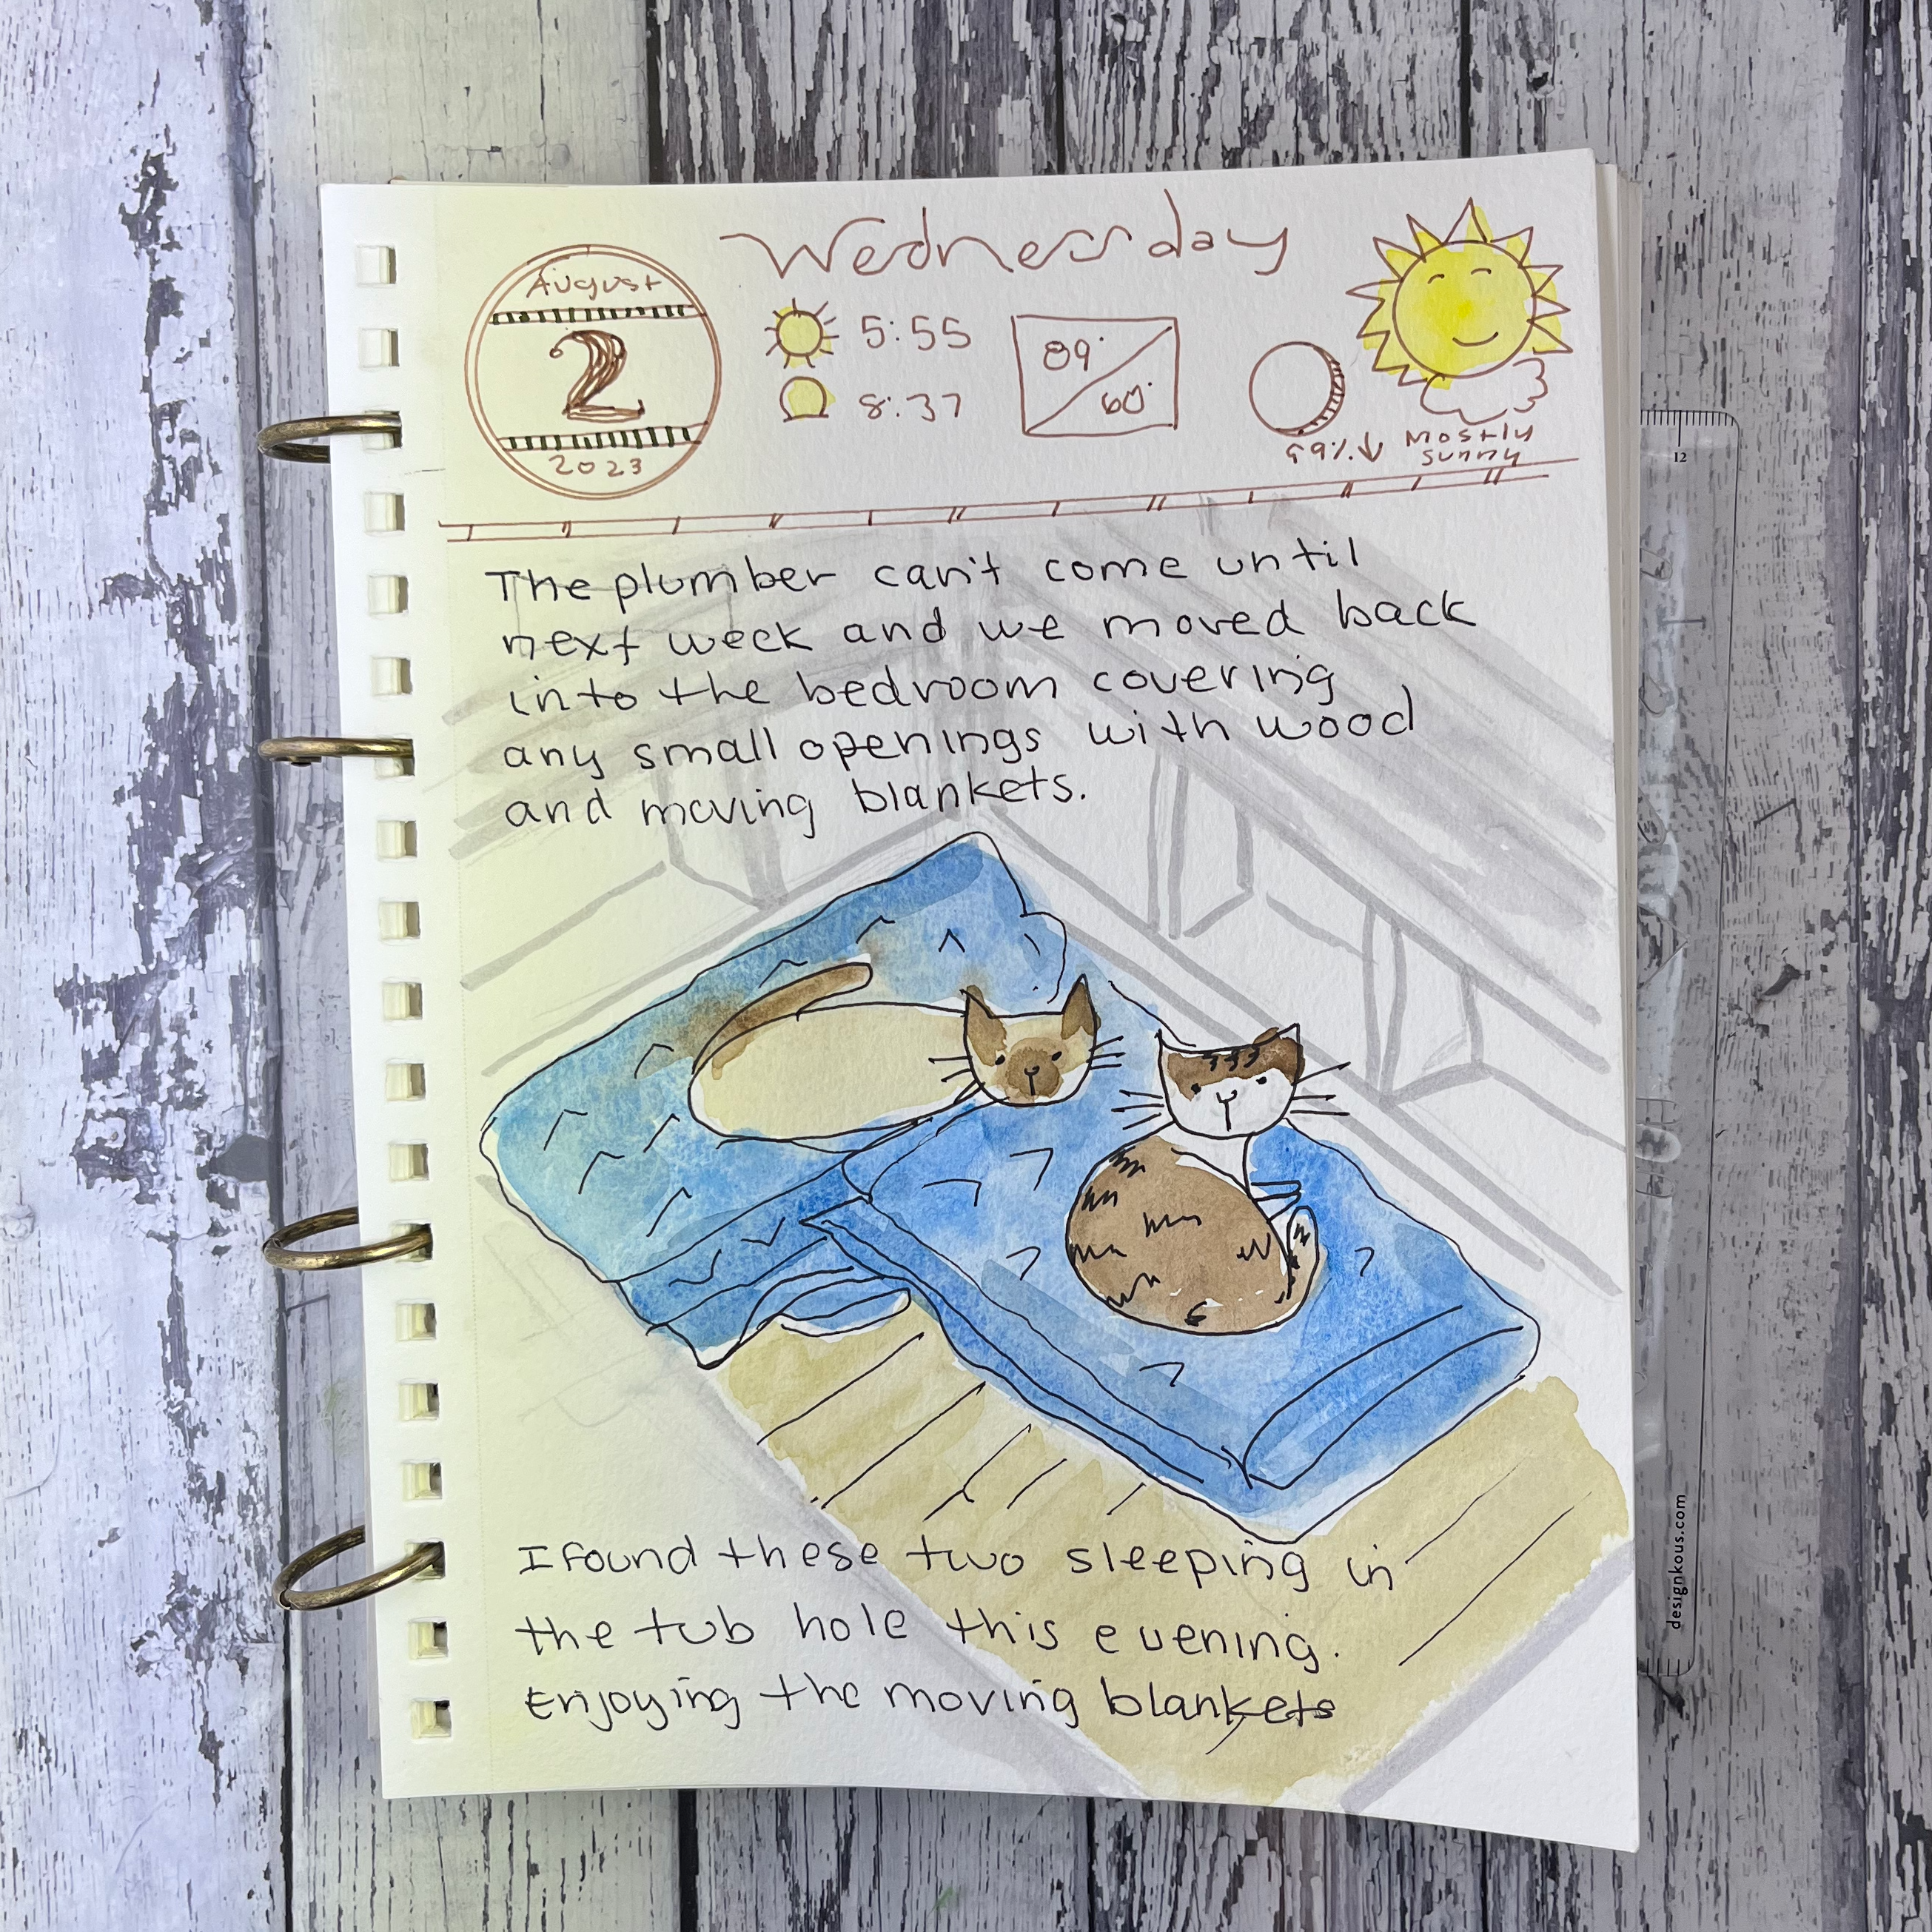 Wednesday
August
2
2023
5:55
8:37
89°
60°
99%↓
Mostly
sunny
The plumber can't come until
next week and we moved back
into the bedroom covering
any small openings with wood
and moving blankets.
I found these two sleeping in
the tub hole this evening.
Enjoying the moving blankets
12
designkous.com